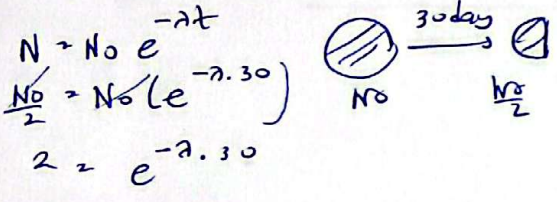 N = N₀ e^{-λt}
N₀/2 = N₀ (e^{-λ.30})
2 = e^{-λ.30}
30 day
N₀
N₀/2